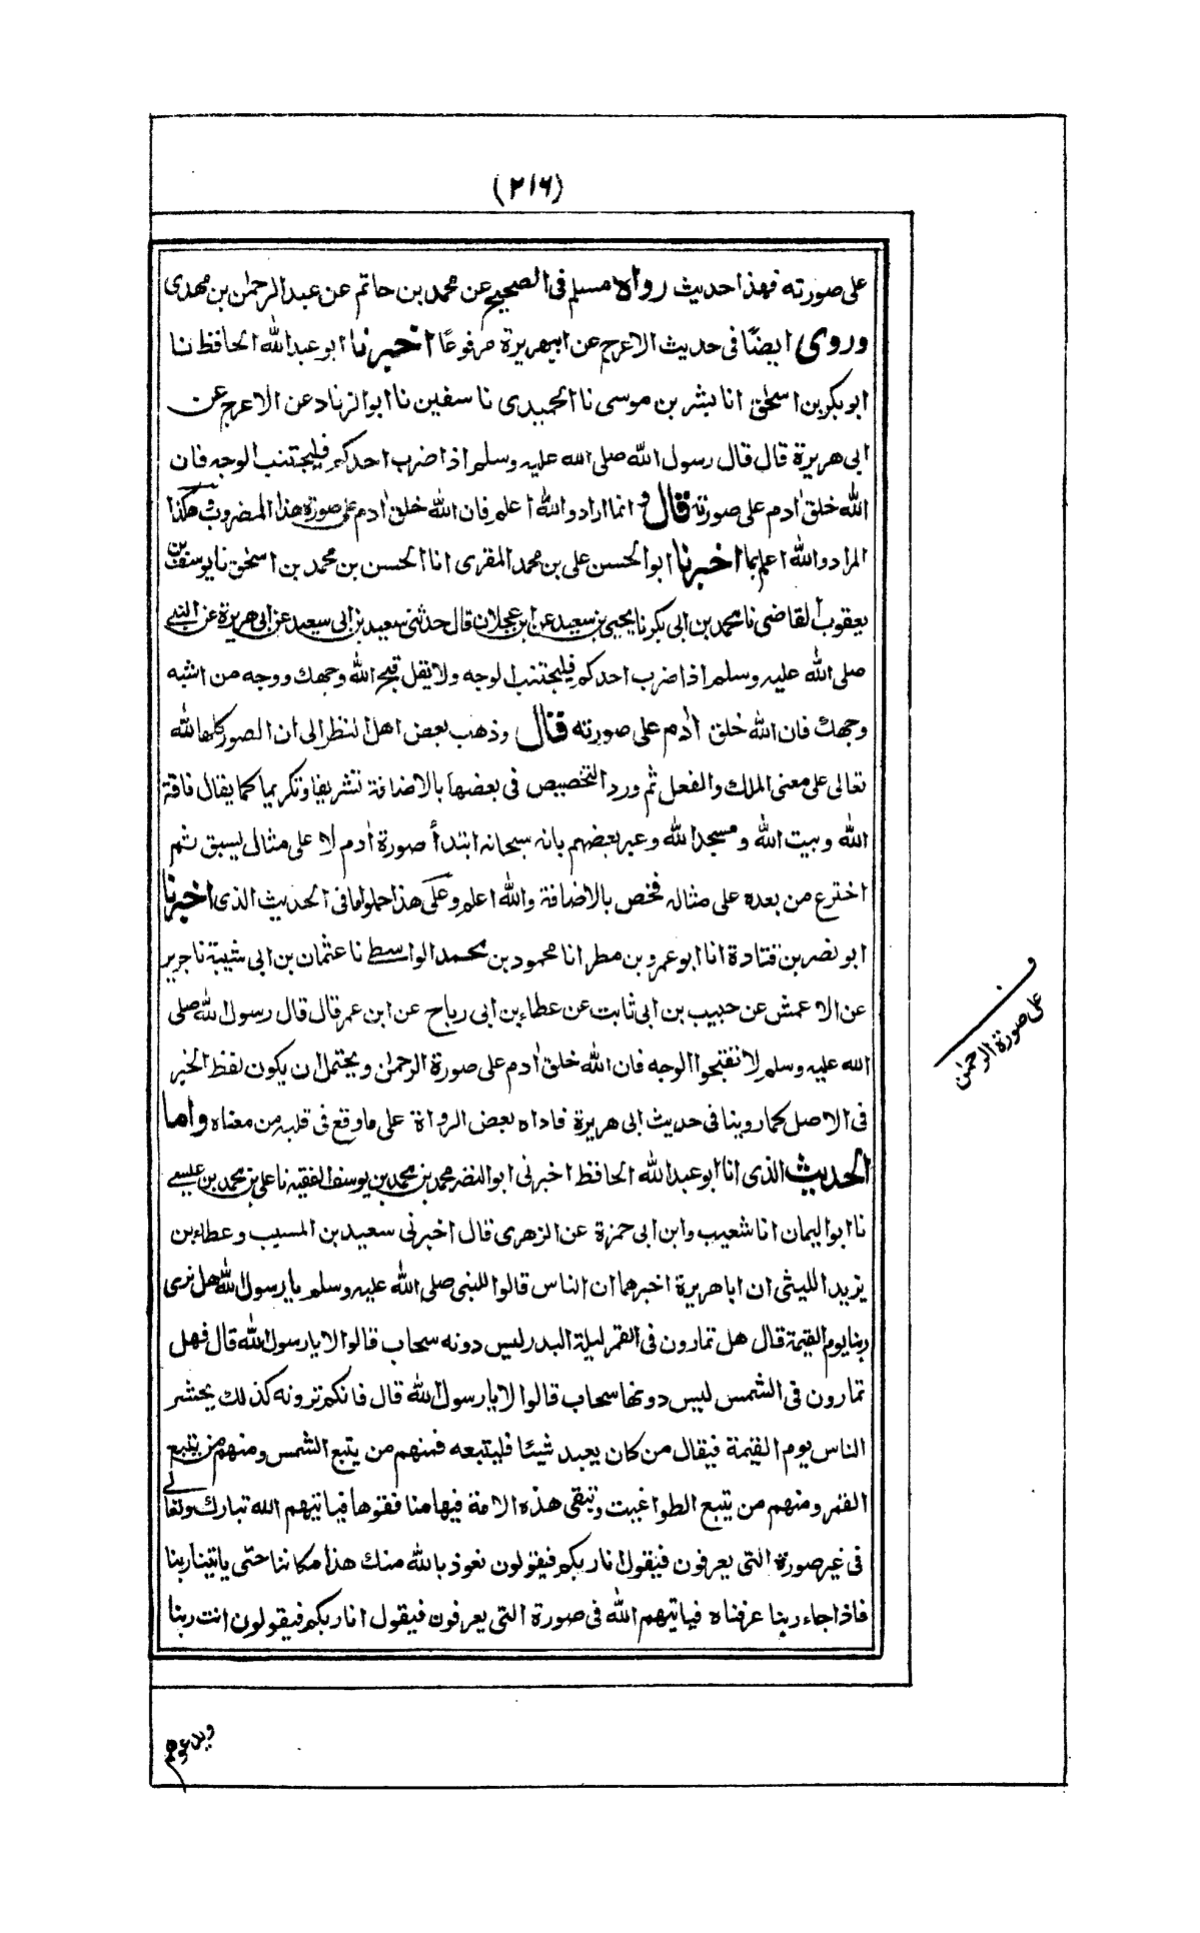 (٢١٦)
على صورته فهذا حديث رواه مسلم فى الصحيح عن محمد بن حاتم عن عبد الرحمٰن بن مهدى
وروى ايضًا فى حديث الاعرج عن ابيهريرة مرفوعًا اخبرنا ابو عبد الله الحافظ نا
ابو بكر بن اسحٰق انا بشر بن موسى نا الحميدى نا سفين نا ابو الزناد عن الاعرج عن
ابى هريرة قال قال رسول الله صلى الله عليه وسلم اذا ضرب احدكم فليجتنب الوجه فان
الله خلق اٰدم على صورته قال وانما اراد والله اعلم فان الله خلق اٰدم على صورة هذا المضروب هكذا
المراد والله اعلم بما اخبرنا ابو الحسن على بن محمد المقرى انا الحسن بن محمد بن اسحٰق نا يوسف بن
يعقوب القاضى نا محمد بن ابى بكر نا يحيى بن سعيد عن ابن عجلان قال حدثنى سعيد بن ابى سعيد عن ابى هريرة عن النبى
صلى الله عليه وسلم اذا ضرب احدكم فليجتنب الوجه ولا يقل قبح الله وجهك ووجه من اشبه
وجهك فان الله خلق اٰدم على صورته قال وذهب بعض اهل النظر الى ان الصور كلها لله
تعالى على معنى الملك والفعل ثم ورد التخصيص فى بعضها بالاضافة تشريفا وتكريما كما يقال ناقة
الله وبيت الله ومسجد الله وعبر بعضهم بانه سبحانه ابتدأ صورة اٰدم لا على مثال سبق ثم
اخترع من بعده على مثاله فخص بالاضافة والله اعلم وعلى هذا حملوا ما فى الحديث الذى اخبرنا
ابو نصر بن قتادة انا ابو عمرو بن مطر انا محمود بن محمد الواسطى نا عثمان بن ابى شيبة نا جرير
عن الاعمش عن حبيب بن ابى ثابت عن عطاء بن ابى رباح عن ابن عمر قال قال رسول الله صلى
الله عليه وسلم لا تقبحوا الوجه فان الله خلق اٰدم على صورة الرحمٰن ويحتمل ان يكون لفظ الخبر
فى الاصل كما روينا فى حديث ابى هريرة فاداه بعض الرواة على ما وقع فى قلبه من معناه واما
الحديث الذى انا ابو عبد الله الحافظ اخبرنى ابو النضر محمد بن محمد بن يوسف الفقيه نا على بن محمد بن عيسى
نا ابو اليمان انا شعيب وابن ابى حمزة عن الزهرى قال اخبرنى سعيد بن المسيب وعطاء بن
يزيد الليثى ان ابا هريرة اخبرهما ان الناس قالوا للنبى صلى الله عليه وسلم يا رسول الله هل نرى
ربنا يوم القيمة قال هل تمارون فى القمر ليلة البدر ليس دونه سحاب قالوا لا يا رسول الله قال فهل
تمارون فى الشمس ليس دونها سحاب قالوا لا يا رسول الله قال فانكم ترونه كذلك يحشر
الناس يوم القيمة فيقال من كان يعبد شيئا فليتبعه فمنهم من يتبع الشمس ومنهم من يتبع
القمر ومنهم من يتبع الطواغيت وتبقى هذه الامة فيها منافقوها فياتيهم الله تبارك وتعالى
فى غير صورة التى يعرفون فيقول انا ربكم فيقولون نعوذ بالله منك هذا مكاننا حتى ياتينا ربنا
فاذا جاء ربنا عرفناه فياتيهم الله فى صورة التى يعرفون فيقول انا ربكم فيقولون انت ربنا
على صورة الرحمٰن
ويدعوهم